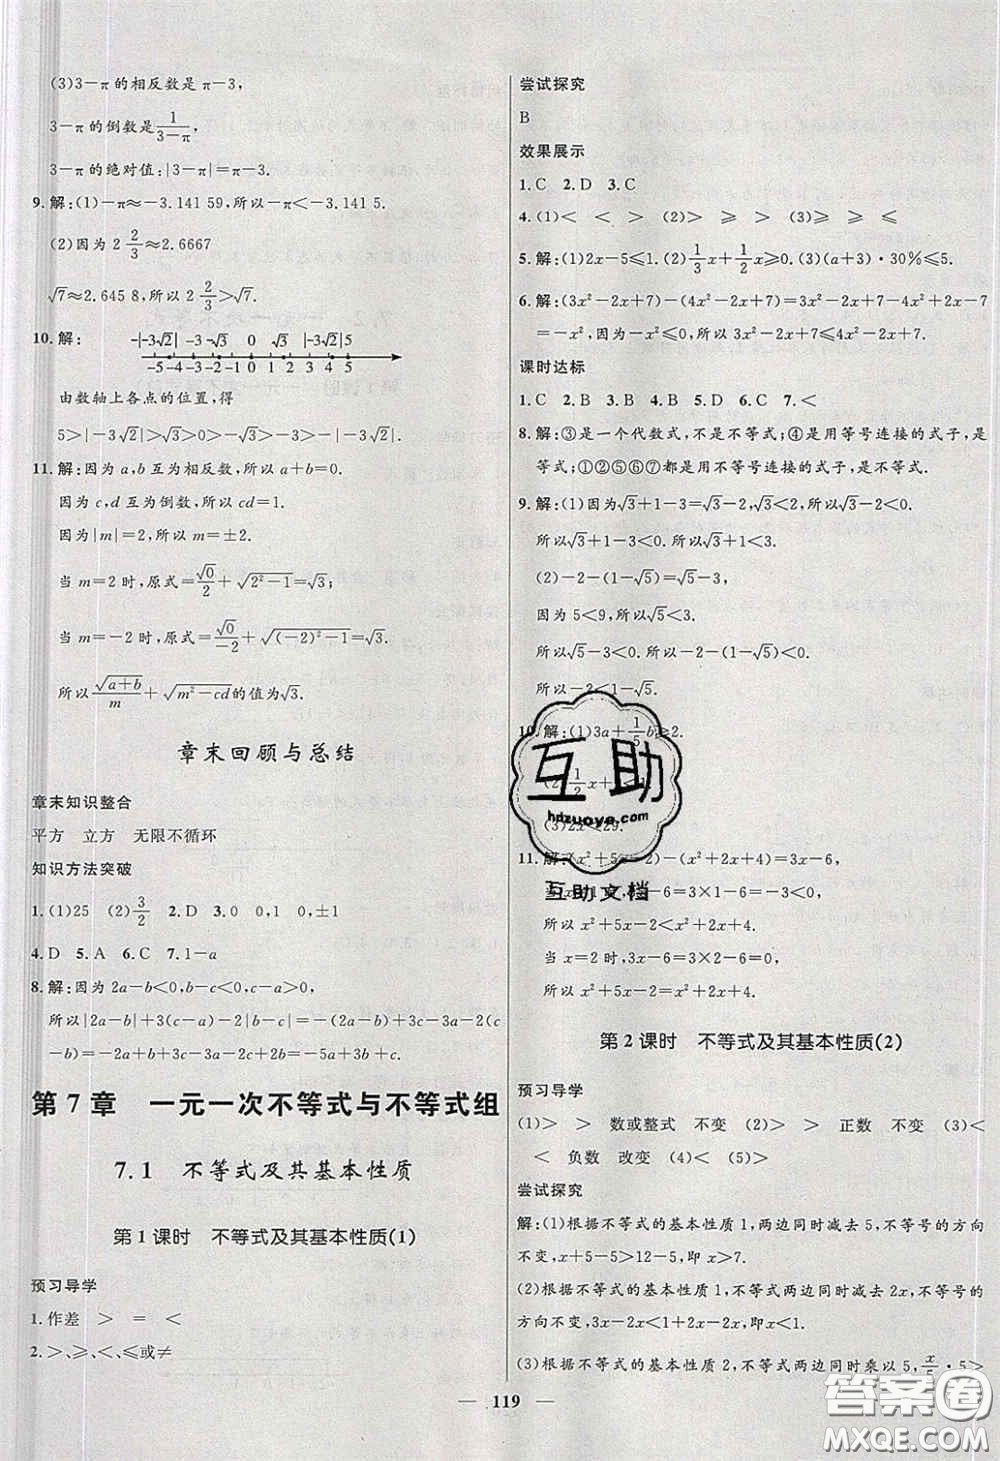 (3)3－π的相反数是π－3,
3－π的倒数是1/(3－π),
3－π的绝对值:|3－π|=π－3.
9.解:(1)－π≈－3.141 59,所以－π<－3.141 5.
(2)因为2 2/3≈2.6667
√7≈2.645 8,所以2 2/3>√7.
10.解: －|－3√2| －√3 0 √3 |－3√2| 5
－5－4－3－2－1 0 1 2 3 4 5
由数轴上各点的位置,得
5>|－3√2|>√3>0>－√3>－|－3√2|.
11.解:因为a,b互为相反数,所以a+b=0.
因为c,d互为倒数,所以cd=1.
因为|m|=2,所以m=±2.
当m=2时,原式=√0/2+√(2²－1)=√3,
当m=－2时,原式=√0/－2+√((－2)²－1)=√3.
所以√(a+b)/m+√(m²－cd)的值为√3.
章末回顾与总结
章末知识整合
平方 立方 无限不循环
知识方法突破
1.(1)25 (2)3/2 2.D 3.0 0,1 0,±1
4.D 5.A 6.C 7.1－a
8.解:因为2a－b<0,b－c<0,c－a>0,
所以|2a－b|+3(c－a)－2|b－c|=－(2a－b)+3(c－a)+2(b
－c)=－2a+b+3c－3a+2b－2c=－5a+3b+c.
第7章 一元一次不等式与不等式组
7.1 不等式及其基本性质
第1课时 不等式及其基本性质(1)
预习导学
1.作差 > = <
2.>、≥、<、≤或≠
尝试探究
B
效果展示
1.C 2.D 3.C
4.(1)< < > (2)> ≥ > (3)≥ ≥ ≤
5.解:(1)2x－5≤1.(2)1/3x+1/2x≥0.(3)(a+3)·30%≤5.
6.解:(3x²－2x+7)－(4x²－2x+7)=3x²－2x+7－4x²+2x－7
=－x²,因为－x²≤0,所以3x²－2x+7≤4x²－2x+7.
课时达标
1.C 2.B 3.B 4.B 5.D 6.C 7.<
8.解:③是一个代数式,不是不等式;④是用等号连接的式子,是
等式;①②⑤⑥⑦都是用不等号连接的式子,是不等式.
9.解:(1)因为√3+1－3=√3－2,√3<2,所以√3－2<0.
所以√3+1－3<0.所以√3+1<3.
(2)－2－(1－√5)=√5－3,
因为5<9,所以√5<3.
所以√5－3<0,所以－2－(1－√5)<0.
所以－2<1－√5.
10.解:(1)3a+1/5b≥2.
(3)2x<29.
11.解:(x²+5x－2)－(x²+2x+4)=3x－6,
当x=1时,3x－6=3×1－6=－3<0,
所以x²+5x－2<x²+2x+4.
当x=2时,3x－6=3×2－6=0,
所以x²+5x－2=x²+2x+4.
第2课时 不等式及其基本性质(2)
预习导学
(1)> > 数或整式 不变 (2)> > 正数 不变 (3)<
< 负数 改变 (4)< (5)>
尝试探究
解:(1)根据不等式的基本性质1,两边同时减去5,不等号的方向
不变,x+5－5>12－5,即x>7.
(2)根据不等式的基本性质1,不等式两边同时减去2x,不等号
的方向不变,3x－2x<1+2x－2x,即x<1.
(3)根据不等式的基本性质2,不等式两边同时乘以5,x/5·5>
— 119 —
互助
hdzuoye.com
互助文档
答案圈
MXQE.COM